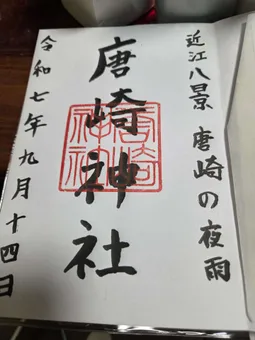 近江八景 唐崎の夜雨
唐崎神社
令和七年九月十四日